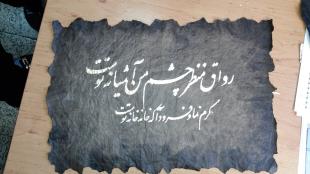 رواق منظر چشم من آشیانه توست
کرم نما و فرود آ که خانه خانه توست